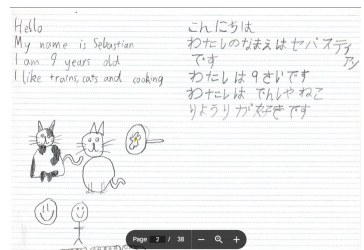 Hello
My name is Sebastian
I am 9 years old
I like trains, cats and cooking
こんにちは
わたしのなまえはセバスティアン
です
わたしは9さいです
わたしはでんしゃねこ
りようりが好きです
Page 2 / 38